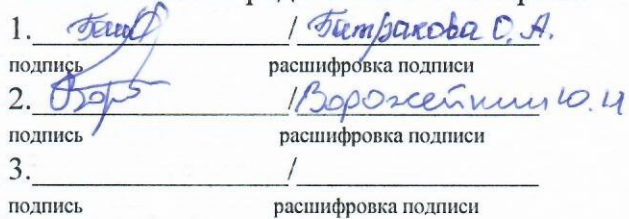 1. / Битракова О. А.
подпись расшифровка подписи
2. / Ворожейкин Ю. И
подпись расшифровка подписи
3. /
подпись расшифровка подписи